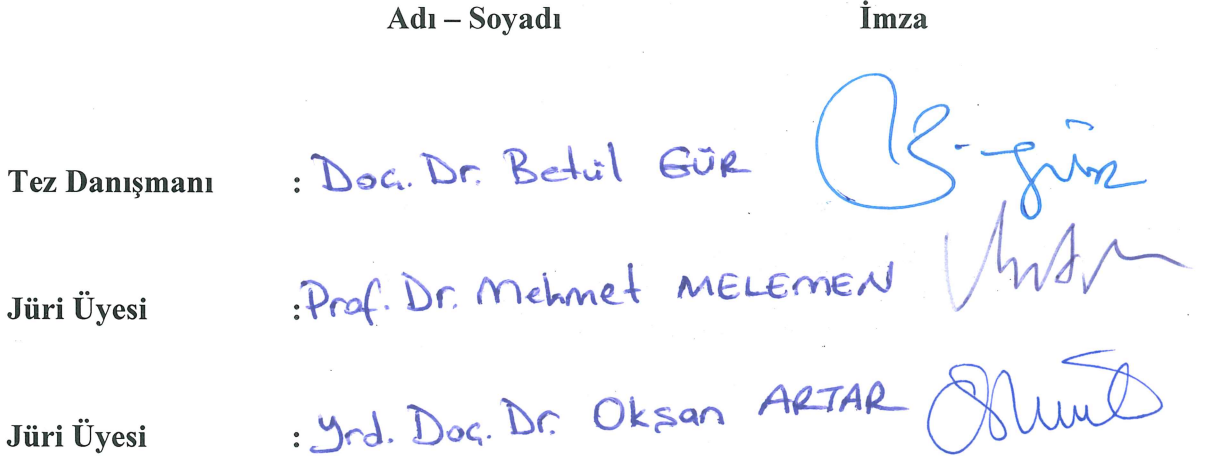 Adı – Soyadı İmza
Tez Danışmanı : Doç. Dr. Betül GÜR B. Gür
Jüri Üyesi : Prof. Dr. Mehmet MELEMEN
Jüri Üyesi : Yrd. Doç. Dr. Okşan ARTAR